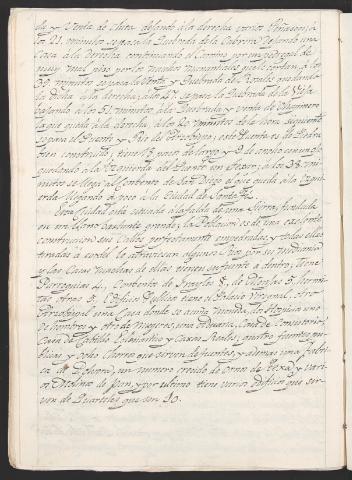 y Venta de Chia dejando a la derecha varios Peñascos; a
los 21 minutos se pasa la Quebrada de la Cabrera dejando una
Casa à la derecha continuando el Camino por un pedregal de
muy mal piso por los muchos manantiales que lo cortan, à los
39 minutos se pasa la Venta y Quebrada de Rosales quedando
la dicha à la derecha; à los 47 se pasa la Quebrada de la
bajando à los 51 minutos à la Quebrada y Venta de Chapinero
la que queda à la derecha, à los 20 minutos de la hora siguiente
se pasa el Puente y Rio del Arzobispo; este Puente es de Piedra
bien construido, tiene 15 pasos de largo y 8 de ancho
quedando à la Izquierda del Puente un Tejar; à los 38 mi-
nutos se llega al Convento de San Diego el que queda à la Izqui-
erda llegando à poco à la Ciudad de Santa Fe.
Esta Ciudad està situada à la falda de una Sierra, fundada
en un llano bastante grande; la Poblacion es de una excelente
construccion sus Calles perfectamente empedradas, y todas ellas
tiradas à cordel la atraviesan algunos Rios por sus medianias
y las Casas muchas de ellas tienen su fuente a dentro; tiene
Parroquias 4, Conventos de Frayles 8, de Monjas 5, hermi-
tas otras 5. Edificios Publicos tiene el Palacio Virreynal, otro
Arzobispal una Casa donde se acuña moneda, dos Hospicios uno
de hombres y otro de mugeres, una de Aduana, Casa de
Casa de Cabildo y Caxas Reales, quatro fuentes pu-
blicas y ocho Chorros que sirven de fuentes, y ademas una fabri-
ca de Polvora, un numero crecido de Ornos de Texa, y vari-
os Molinos de pan, y por ultimo tiene varios Edificios que sir-
ven de Quarteles que son 10.